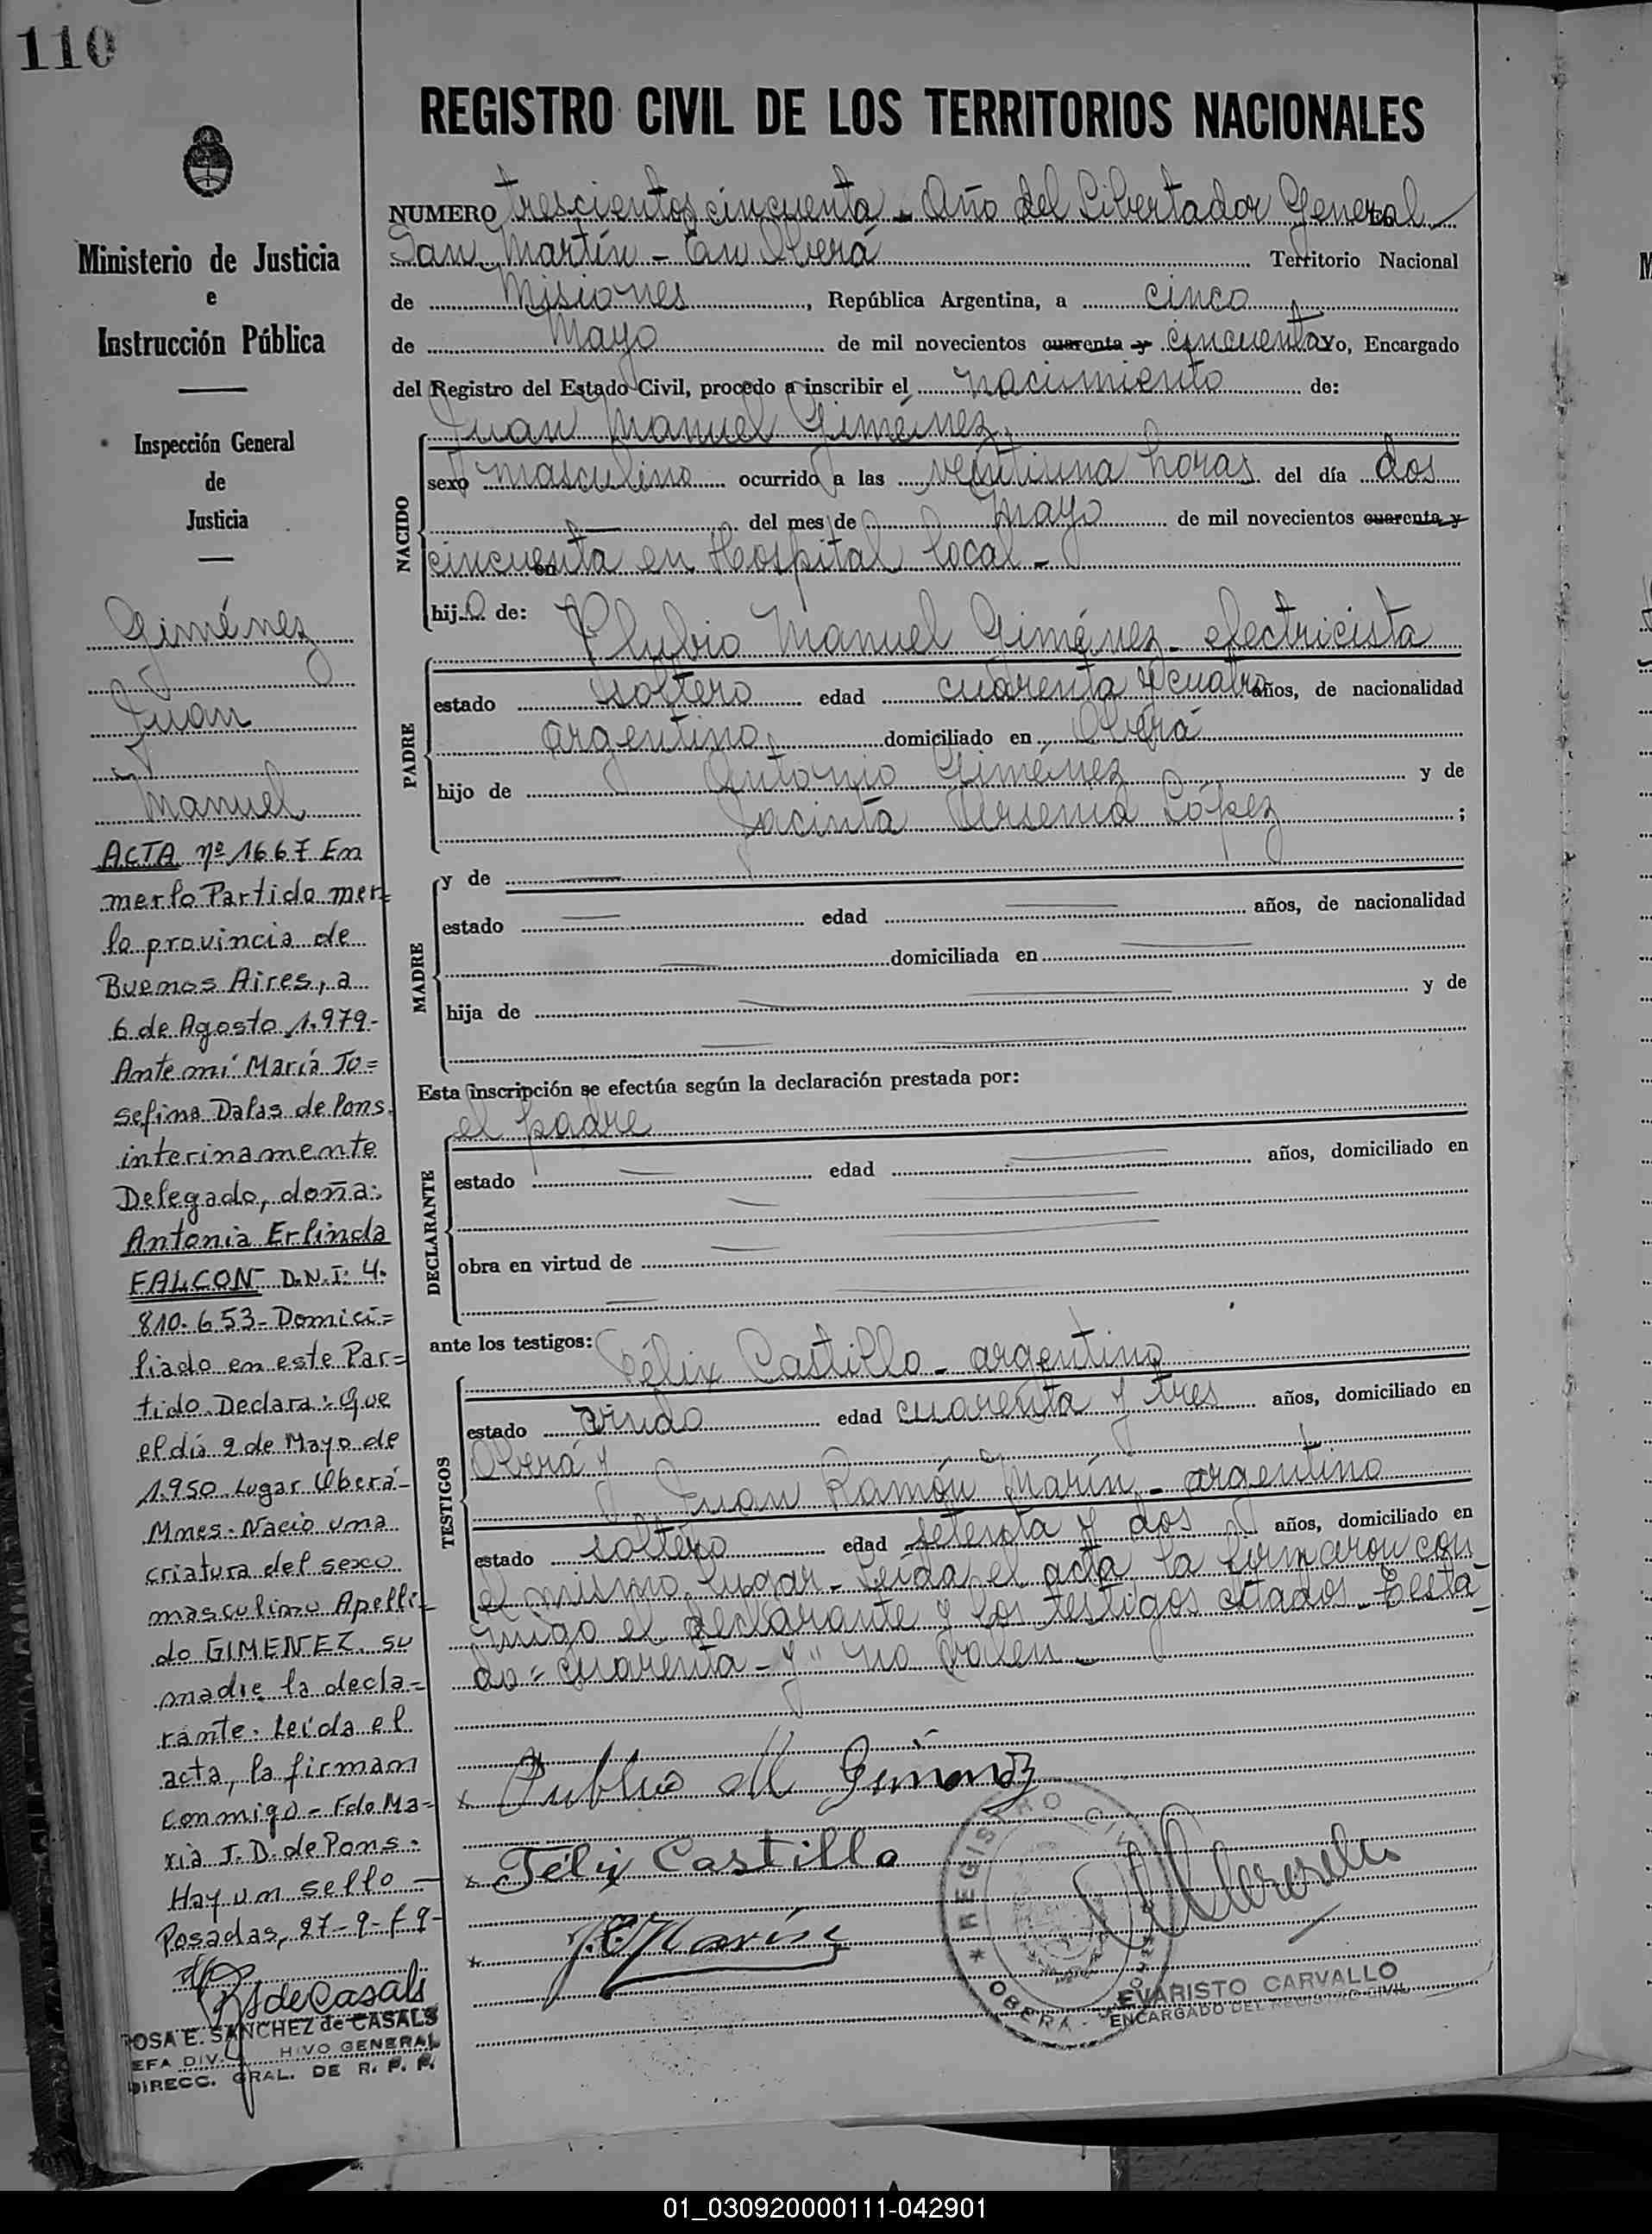 110
REGISTRO CIVIL DE LOS TERRITORIOS NACIONALES
Ministerio de Justicia
e
Instrucción Pública
Inspección General
de
Justicia
Giménez
Juan
Manuel
ACTA nº 1667 En
merlo Partido mer-
lo provincia de
Buenos Aires, a
6 de Agosto 1.979-
Ante mí María Jo=
sefina Dalas de Pons
interinamente
Delegado, doña:
Antonia Erlinda
FALCON D.N.I. 4.
810.653- Domici=
liado en este Par=
tido. Declara: Que
el día 2 de Mayo de
1.950 Lugar Oberá-
Mnes. Nacio una
criatura del sexo
masculino Apelli-
do GIMENEZ. su
madre la decla=
rante. Leída el
acta, la firman
conmigo - Fdo Ma=
ria J. D. de Pons.
Hay un sello -
Posadas, 27-9-79-
de Casals
ROSA E. SANCHEZ de CASALS
EFA DIV. HIVO GENERAL
DIRECC. GRAL. DE R. P. P.
NUMERO trescientos cincuenta - Año del Libertador General
San Martín - En Oberá Territorio Nacional
de Misiones, República Argentina, a cinco
de Mayo de mil novecientos cuarenta y cincuenta Yo, Encargado
del Registro del Estado Civil, procedo a inscribir el nacimiento de:
NACIDO
Juan Manuel Giménez,
sexo masculino ocurrido a las veintiuna horas del día dos
del mes de mayo de mil novecientos cuarenta y
cincuenta en Hospital local -
hijo de:
PADRE
Plubio Manuel Giménez - electricista
estado soltero edad cuarenta y cuatro años, de nacionalidad
argentino, domiciliado en Oberá
hijo de Antonio Giménez y de
Jacinta Arsenia López ;
MADRE
y de
estado edad años, de nacionalidad
domiciliada en
hija de y de
Esta inscripción se efectúa según la declaración prestada por:
DECLARANTE
el padre
estado edad años, domiciliado en
obra en virtud de
ante los testigos:
TESTIGOS
Félix Castillo - argentino
estado viudo edad cuarenta y tres años, domiciliado en
Oberá y
Juan Ramón Marín - argentino
estado soltero edad setenta y dos años, domiciliado en
el mismo lugar - Leída el acta la firmaron con
migo el declarante y los testigos citados - Testa-
do = cuarenta - y" no valen -
x Publio M Gimenez
x Félix Castillo
x Marín
* REGISTRO CIVIL * OBERA -
EVARISTO CARVALLO
ENCARGADO DEL REGISTRO CIVIL
01_030920000111-042901